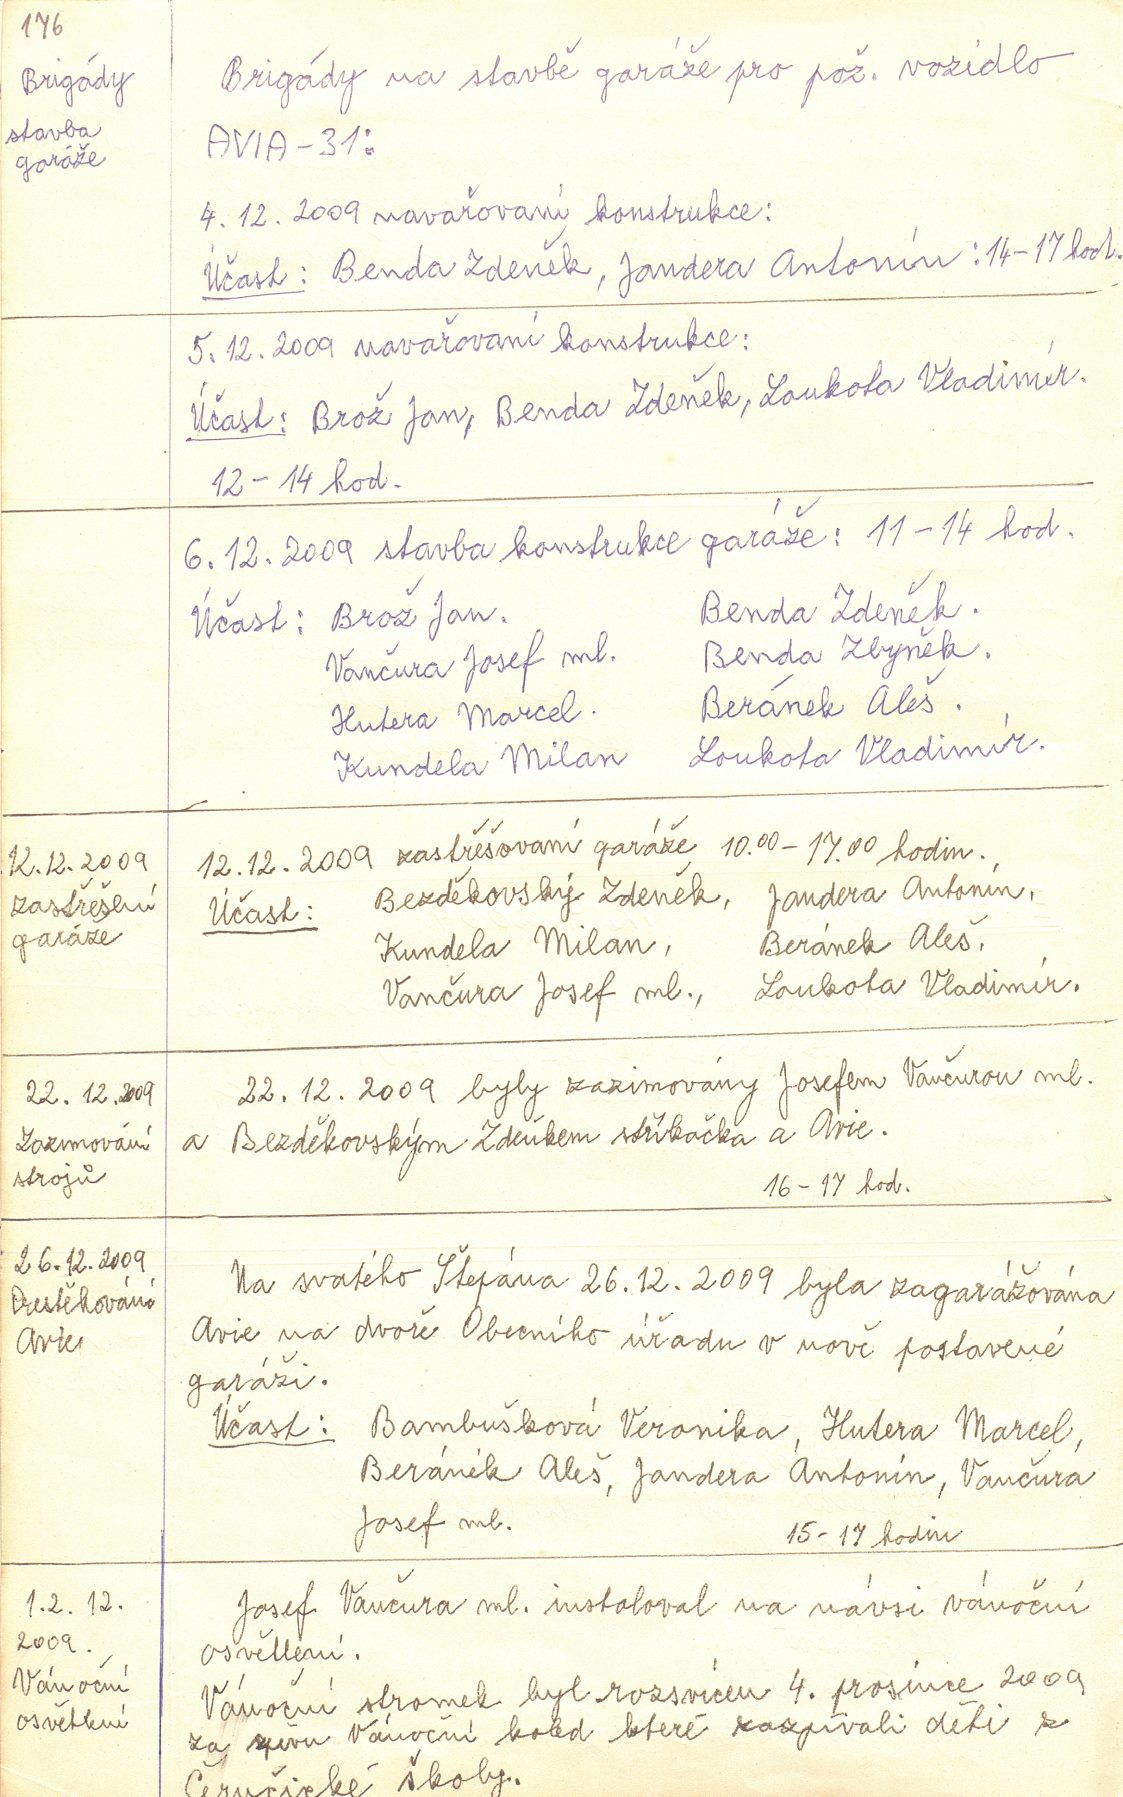 176
Brigády
stavba
garáže
Brigády na stavbě garáže pro pož. vozidlo
AVIA-31:
4.12.2009 navařovaní konstrukce:
Účast: Benda Zdeněk, Jandera Antonín: 14-17 hod.
5.12.2009 navařovaní konstrukce:
Účast: Brož Jan, Benda Zdeněk, Loukota Vladimír.
12-14 hod.
6.12.2009 stavba konstrukce garáže: 11-14 hod.
Účast: Brož Jan. Benda Zdeněk.
Vančura Josef ml. Benda Zbyněk.
Hutera Marcel. Beránek Aleš.
Kundela Milan Loukota Vladimír.
12.12.2009
zastřešení
garáže
12.12.2009 zastřešovaní garáže 10.00-17.00 hodin.
Účast: Bezděkovský Zdeněk, Jandera Antonín,
Kundela Milan, Beránek Aleš,
Vančura Josef ml., Loukota Vladimír.
22.12.2009
Zazimování
strojů
22.12.2009 byly zazimovány Josefem Vančurou ml.
a Bezděkovským Zdeňkem stříkačka a Avie.
16-17 hod.
26.12.2009
Přestěhování
Avie
Na svatého Štěpána 26.12.2009 byla zagarážována
Avie na dvoře Obecního úřadu v nově postavené
garáži.
Účast: Bambušková Veronika, Hutera Marcel,
Beránek Aleš, Jandera Antonín, Vančura
Josef ml. 15-17 hodin
1.2.12.
2009.
Vánoční
osvětlení
Josef Vančura ml. instaloval na návsi vánoční
osvětlení.
Vánoční stromek byl rozsvícen 4. prosince 2009
za Vánoční koled které zazpívali děti z
školy.